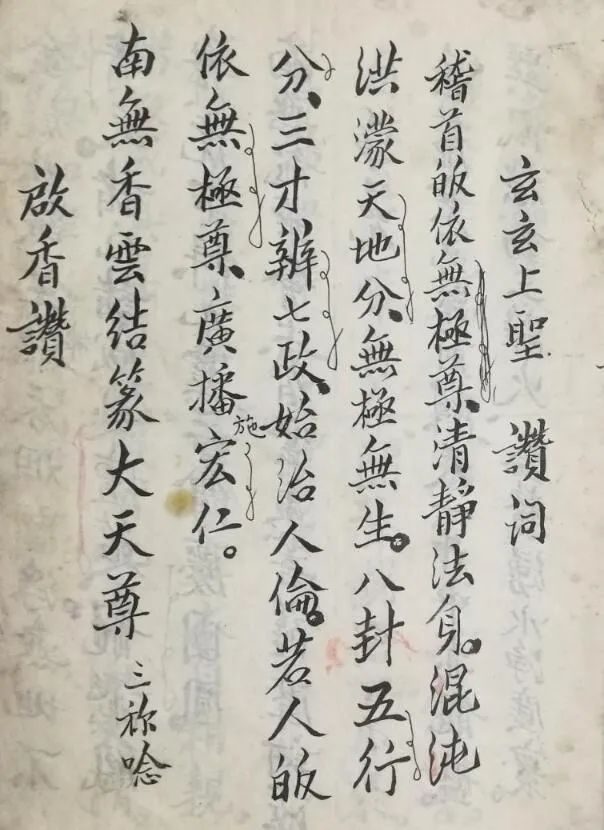 玄玄上聖 讚词
稽首皈依無極尊、清靜法身。混沌
洪濛天地分、無極無生。八封五行
分、三才辨七政、始治人倫。若人皈
依無極尊、廣播施宏仁。
南無香雲結篆大天尊 三称唸
啟香讚